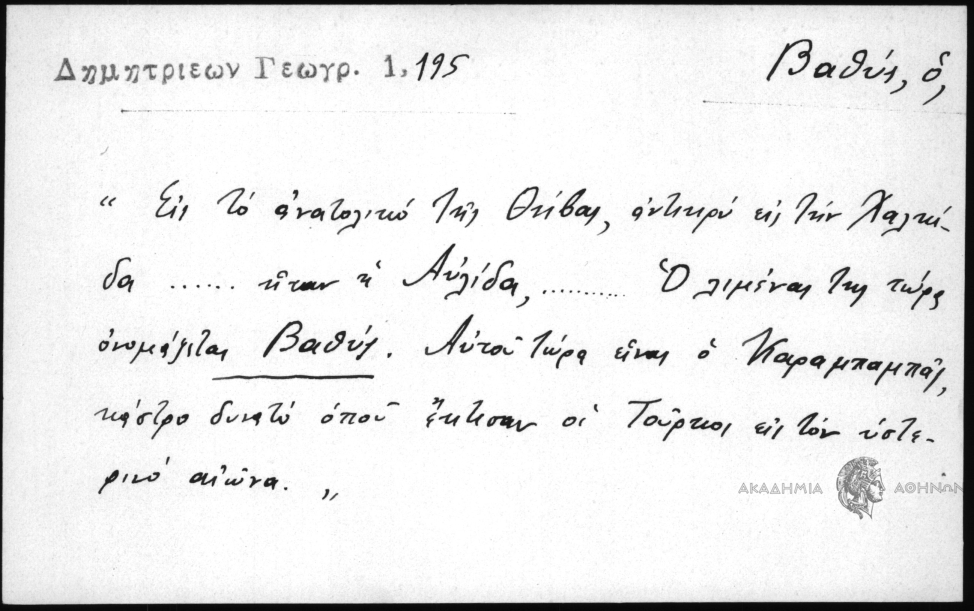 Δημητριεων Γεωγρ. 1, 195
Βαθύς, ὁ,
“ Εἰς τὸ ἀνατολικὸ τῆς Θήβας, ἀντικρὺ εἰς τὴν Χαλκί-
δα ...... ἦταν ἡ Αὐλίδα, .......... Ὁ λιμένας της τώρα
ὀνομάζεται Βαθύς. Αὐτοῦ τώρα εἶναι ὁ Καραμπαμπᾶς,
κάστρο δυνατὸ ὁποῦ ἔκτισαν οἱ Τοῦρκοι εἰς τὸν ὑστε-
ρινὸ αἰῶνα. „
ΑΚΑΔΗΜΙΑ ΑΘΗΝΩΝ